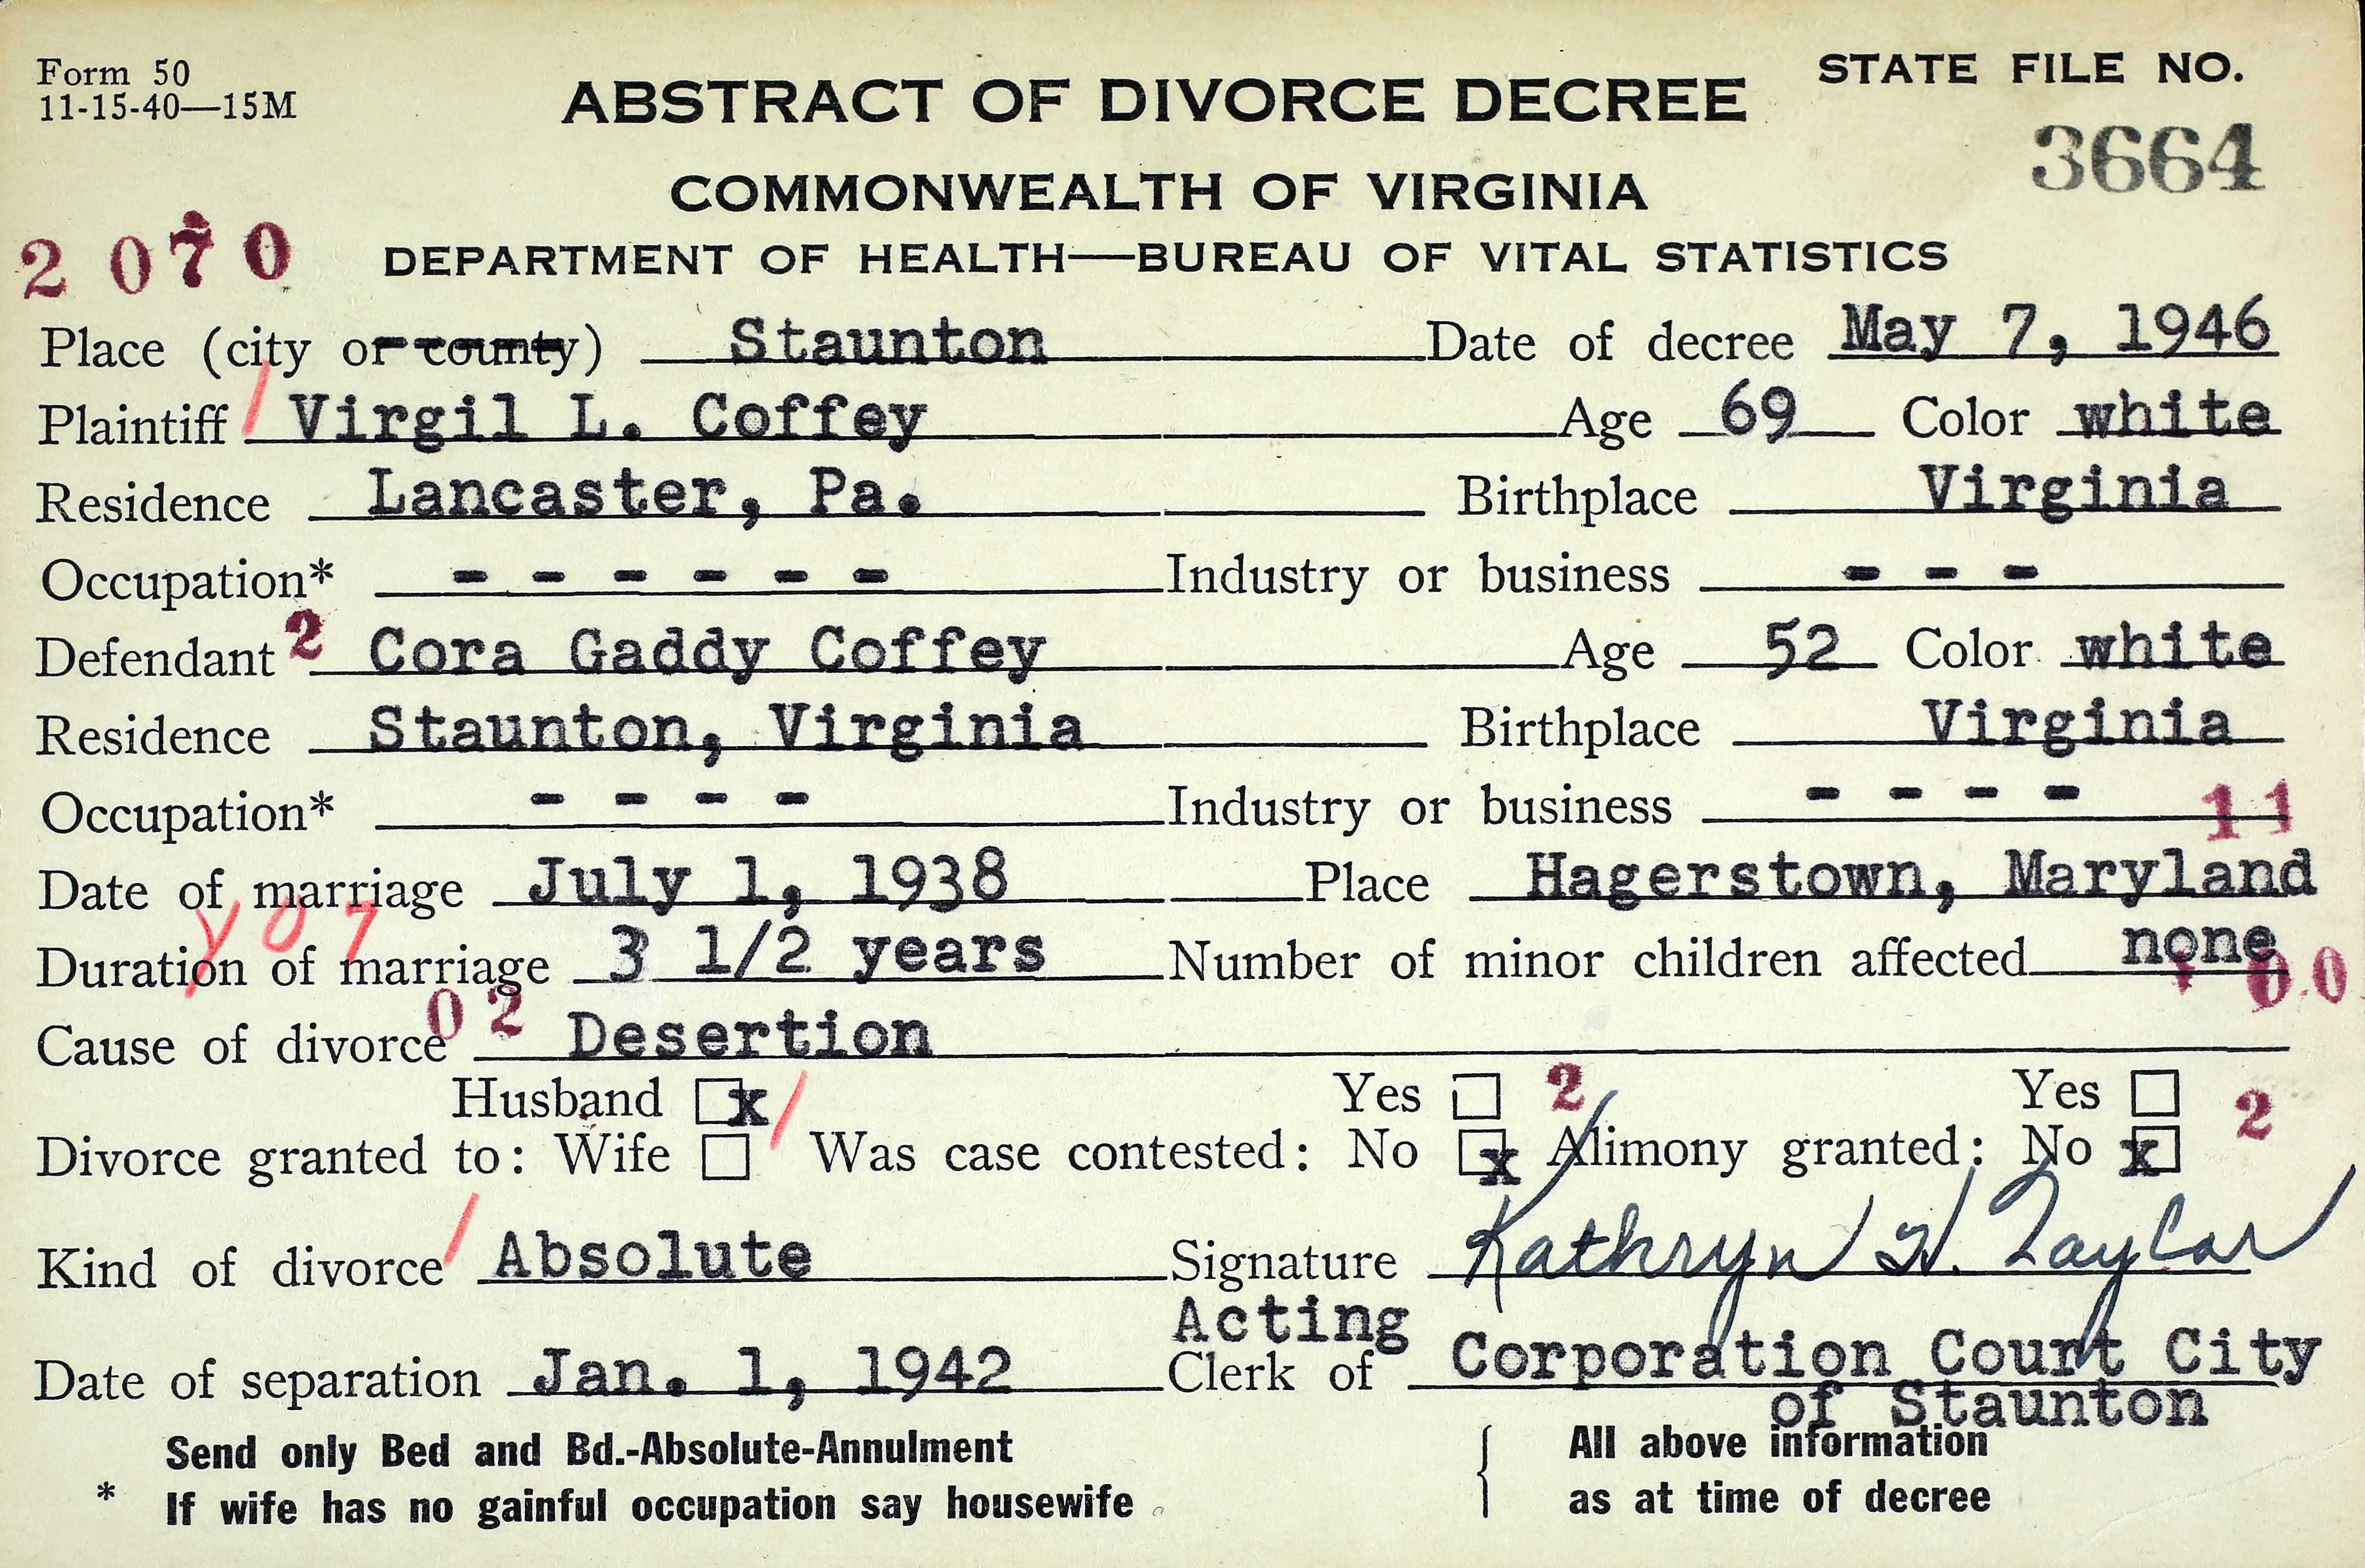 Form 50
11-15-40—15M
ABSTRACT OF DIVORCE DECREE
STATE FILE NO.
3664
COMMONWEALTH OF VIRGINIA
2 0 7 0
DEPARTMENT OF HEALTH—BUREAU OF VITAL STATISTICS
Place (city or county) Staunton Date of decree May 7, 1946
Plaintiff Virgil L. Coffey Age 69 Color white
Residence Lancaster, Pa. Birthplace Virginia
Occupation* - - - - - - Industry or business - - -
Defendant 2 Cora Gaddy Coffey Age 52 Color white
Residence Staunton, Virginia Birthplace Virginia
Occupation* - - - - Industry or business - - - - 11
Date of marriage July 1, 1938 Place Hagerstown, Maryland
Duration of marriage 3 1/2 years Number of minor children affected none
0 2 0 0
Cause of divorce Desertion
Husband x Yes 2 Yes 2
Divorce granted to: Wife Was case contested: No x Alimony granted: No x
Kind of divorce Absolute Signature Kathryn H. Taylor
Acting
Date of separation Jan. 1, 1942 Clerk of Corporation Court City
of Staunton
Send only Bed and Bd.-Absolute-Annulment { All above information
* If wife has no gainful occupation say housewife as at time of decree